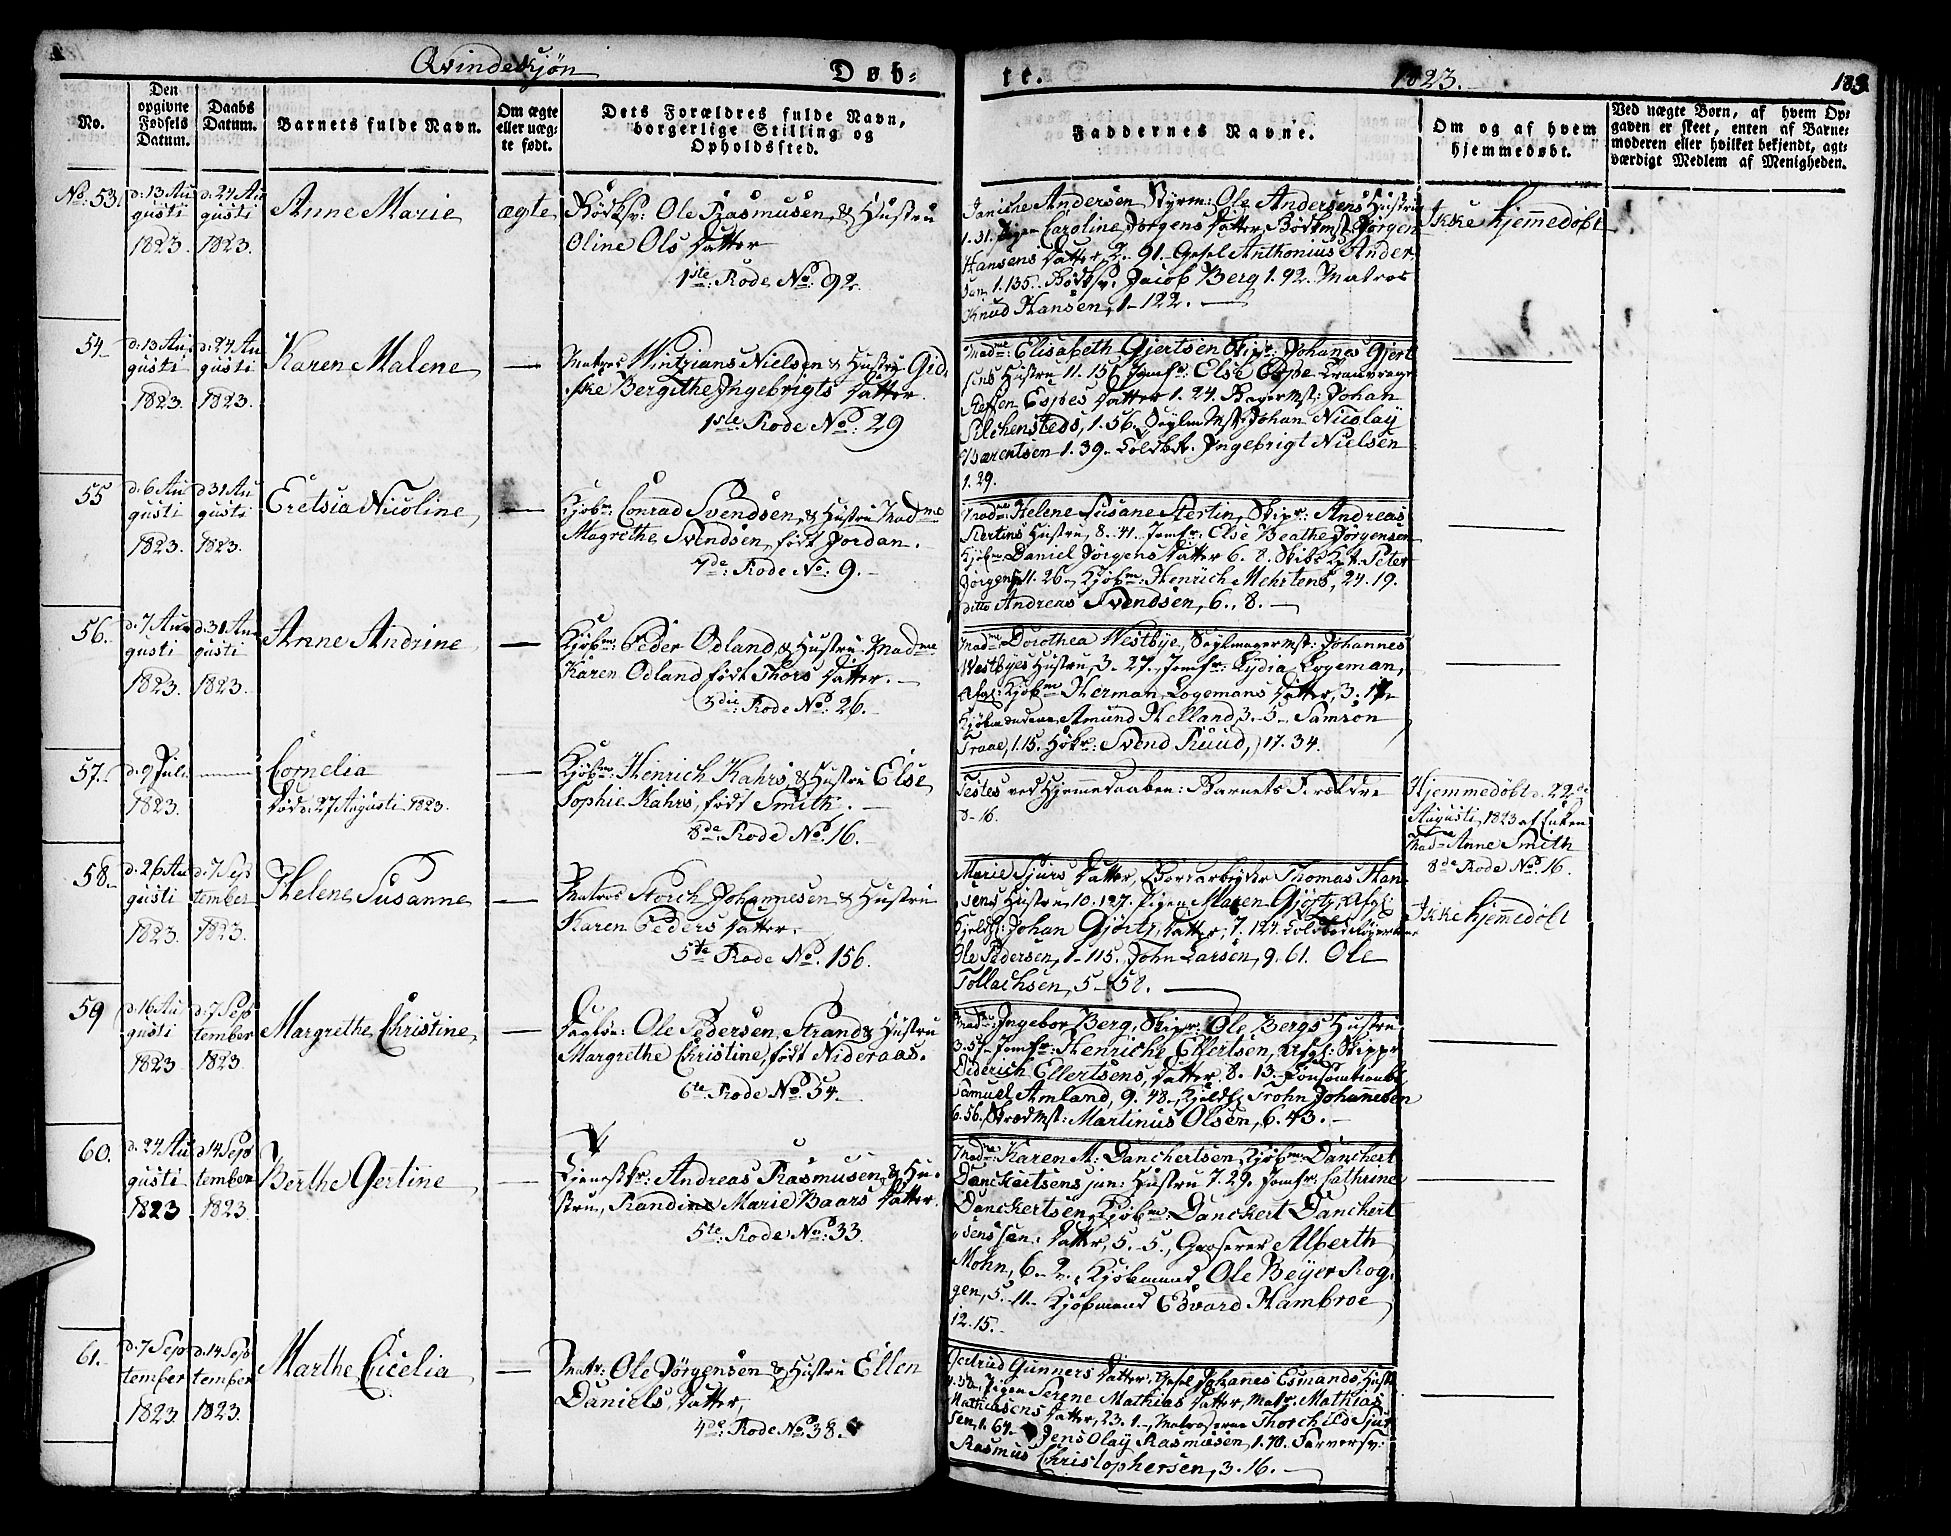 Qvindekjøn
Døb-
te.
1823.
183
No.
Den
opgivne
Fødsels
Datum.
Daabs
Datum.
Barnets fulde Navn.
Om ægte
eller uæg-
te født.
Dets Forældres fulde Navn,
borgerlige Stilling og
Opholdssted.
Faddernes Navne.
Om og af hvem
hjemmedøbt.
Ved uægte Børn, af hvem Op-
gaven er skeet, enten af Barne-
moderen eller hvilket bekjendt, agt-
værdigt Medlem af Menigheden.
No: 53.
d: 13 Au
gusti
1823.
d: 24 Au
gusti
1823.
Anne Marie
ægte
Bødksv: Ole Rasmusen, & Hustru
Oline Ols Datter
1ste: Rode No: 92.
Janiche Andersen Styrm: Ole Andersens Hustru
1. 31. Pige Caroline Jørgens Datter, Bødkmst: Jørgen
Hansens Datter, 2. 91. Gesel Anthonius Ander
sen 1. 135. Bødksv. Jacob Berg 1. 92. Matros
Knud Hansen, 1-122.
Ikke hjemmedøbt
54.
d: 13 Au
gusti
1823.
d: 24 Au
gusti
1823.
Karen Malene
Matros Wintzians Nielsen & Hustru Gid
ske Bergithe Ingebrigts Datter.
1ste: Rode No: 29
Madme: Elisabeth Gjertsen Skipr: Johannes Gjert
sens Hustru 11. 151. Jomfr: Else Espe
Steffen Espes Datter 1. 24. Bagermst: Johan
Silchensteds, 1. 56. Seylm Mst: Johan Nicolay
Barentsen 1. 39. Ingebrigt Nielsen
1. 29.
55
d. 6 Au
gusti
1823.
d 31 Au
gusti
1823.
Eretsia Nicoline
Kjøbm: Conrad Svendsen, & Hustru Madme
Magrethe Svendsen, født Jordan.
7de: Rode No: 9.
Madme: Helene Susane Stertin, Skipr: Andreas
Stertins Hustru, 8. 41. Jomfr: Else Beathe Jørgensen
Kjøbm Daniel Jørgens Datter 6. 8. Skibs Kpt: Peter
Jørgens 11. 26. Kjøbm: Henrich Mehrtens, 24. 19.
ditto Andreas Svendsen, 6. 8.
56.
d. 7 Au
gusti
1823.
d. 31 Au
gusti
1823.
Anne Andrine
Kjøbm: Peder Odland & Hustru Madme
Karen Odland født Thors Datter.
3die: Rode No: 26.
Madme Dorothea Westbye, Seylmagermst: Johannes
Westbyes Hustru, 3. 27. Jomfr: Lydia Logeman,
Afgl: Kjøbm Herman Logemans Datter, 3. 17
Kjøbmændene Amund Helland, 3. 5. Samson
Traae, 1. 15. Høkr: Svend Ruud, 17. 34.
57.
d. 9 Juli
1823.
Cornelia
død: 27 Augusti 1823.
Kjøbm: Henrich Kahrs, & Hustru Else
Sophie Kahrs, født Smith.
8de: Rode No: 16.
Testes ved Hjemmedaaben: Barnets Forældre
8-16.
Hjemmedøbt d. 22de
Augusti, 1823 af Enken
Mad: Anne Smith
8de Rode No: 16.
58.
d. 26 Au
gusti
1823.
d. 7 Sep
tember
1823.
Helene Susanne
Matros Storch Johannesen & Hustru
Karen Peders Datter.
5te Rode No. 156.
Marie Sjurs Datter, Borearbeyder Thomas Han
sens Hustru 10. 127. Pigen Maren Gjørtz, Afgl:
Johan Gjørtz Datter, 7. 127.
Ole Pedersen, 1-115. John Larsen, 9. 61. Ole
Tollachsen, 5-58.
Ikke hjemmedøbt
59
d. 16 Au
gusti
1823
d. 7 Sep
tember
1823.
Margrethe Christine
Ole Pedersen Strand & Hustru
Margrethe Christine, født Nideraas.
6te Rode No: 54.
Mad: Ingebor Berg, Skipr: Ole Bergs Hustru
3. 57. Jomfr: Henriche Ellertsen, Afgl: Skippr
Diderich Ellertsens Datter, 8. 13.
Samuel Amland, 9. 48. Trohn Johannesen
6. 56. Skrædmst: Martinus Olsen, 6. 43.
60.
d. 24 Au
gusti
1823
d. 14 Sep
tember
1823.
Berthe Gertine
Andreas Rasmusen & Hu-
stru, Randine Marie Baars Datter.
5te: Rode No: 33.
Madme: Karen M. Danchertsen, Kjøbm: Danchert
Danckertsens jun: Hustru 7. 29. Jomfr: Cathrine
Danckertsen, Kjøbm: Danckert Danchert
sens sen: Datter, 5. 5. Groserer Alberth
Mohn, 6. 2. Kjøbmand Ole Beyer Rog
gen, 5. 11. Kjøbmand Edvard Hambroe
12. 15.
61.
d. 7 Sep
tember
1823.
d. 14 Sep
tember
1823.
Marthe Cicelia
Matr: Ole Jørgensen & Hustru Ellen
Daniels Datter,
4de: Rode No: 38.
Gertrud Gunners Datter, Gesel Johannes Esmands Hust:
4. 38. Pigen Serene Mathias Datter, Matr: Mathias
Mathiasens Datter, 23. 1. Matroserne Thorchild Sjur
sen, 1. 64. Jens Olay Rasmusen 1. 70. Farversv:
Rasmus Christophersen, 3. 16.